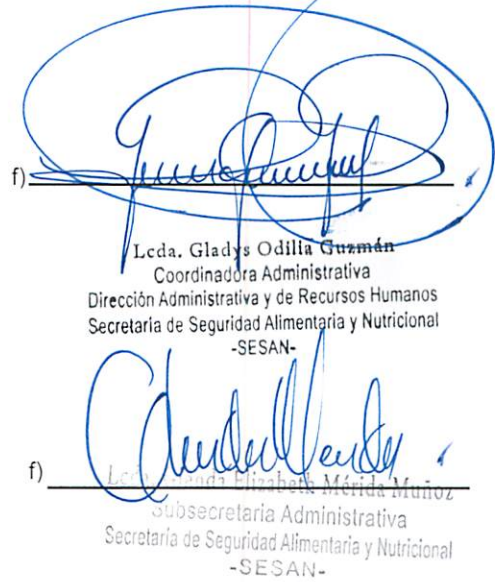 f)
Lcda. Gladys Odilia Guzmán
Coordinadora Administrativa
Dirección Administrativa y de Recursos Humanos
Secretaria de Seguridad Alimentaria y Nutricional
-SESAN-
f)
Elizabeth Mérida Muñoz
Subsecretaria Administrativa
Secretaría de Seguridad Alimentaria y Nutricional
-SESAN-